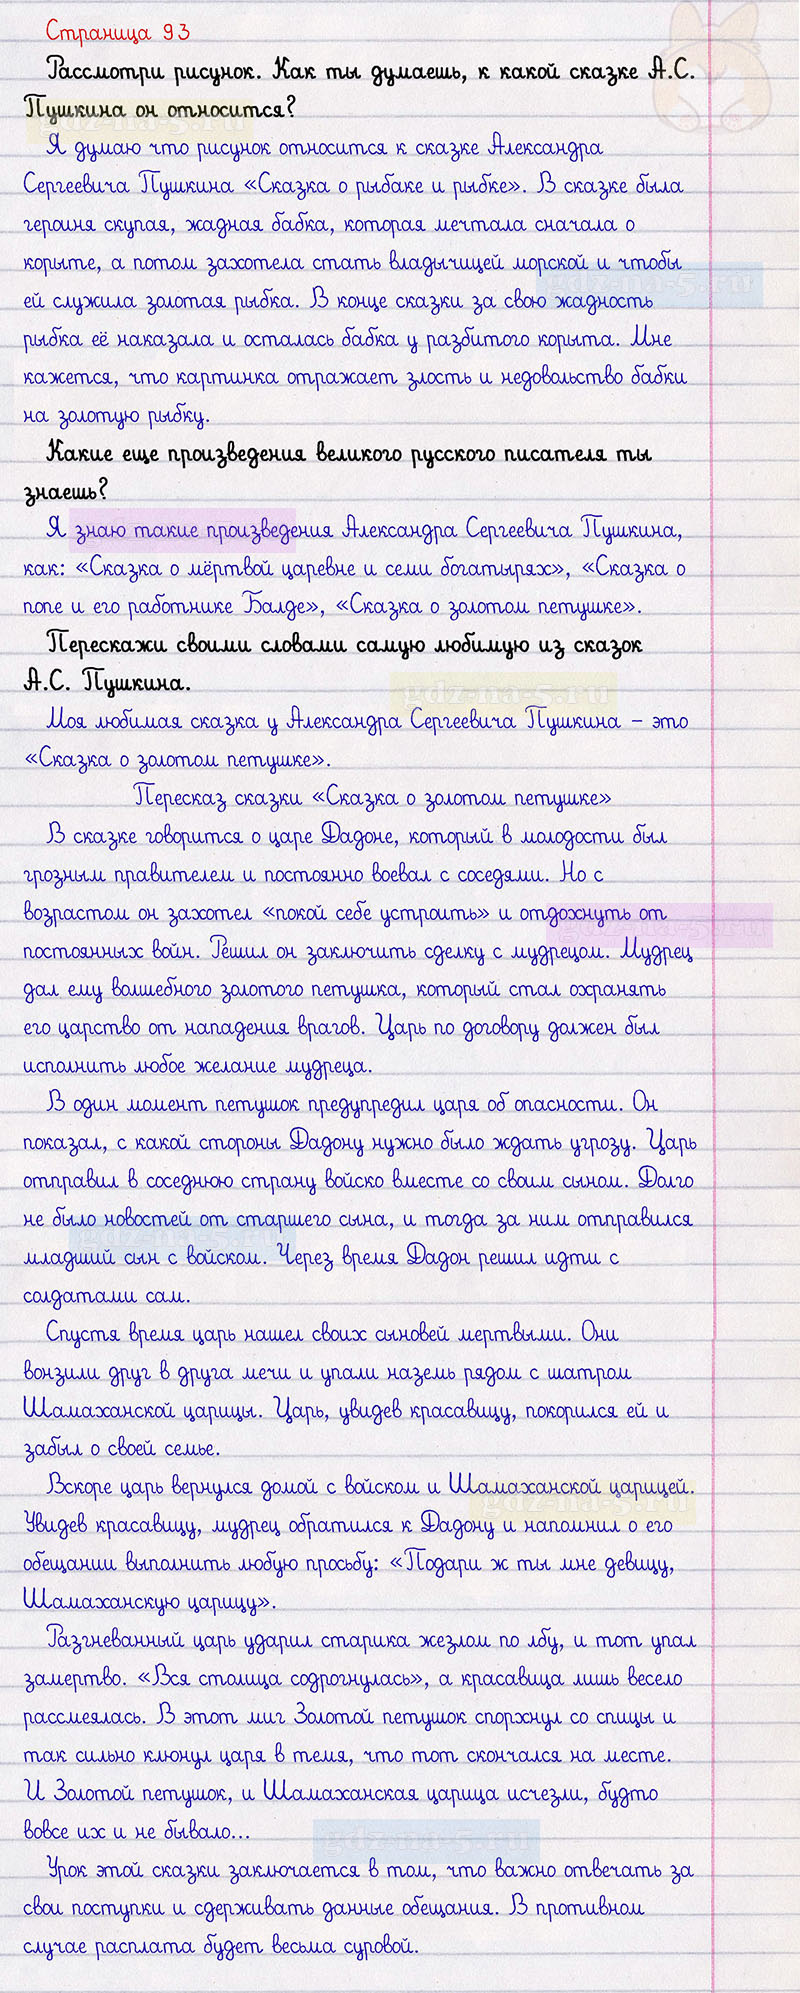 Страница 93
Рассмотри рисунок. Как ты думаешь, к какой сказке А.С.
Пушкина он относится?
gdz-na-5.ru
Я думаю что рисунок относится к сказке Александра
Сергеевича Пушкина «Сказка о рыбаке и рыбке». В сказке была
героиня скупая, жадная бабка, которая мечтала сначала о
корыте, а потом захотела стать владычицей морской и чтобы
gdz-na-5.ru
ей служила золотая рыбка. В конце сказки за свою жадность
рыбка её наказала и осталась бабка у разбитого корыта. Мне
кажется, что картинка отражает злость и недовольство бабки
на золотую рыбку.
Какие еще произведения великого русского писателя ты
знаешь?
Я знаю такие произведения Александра Сергеевича Пушкина,
как: «Сказка о мёртвой царевне и семи богатырях», «Сказка о
попе и его работнике Балде», «Сказка о золотом петушке».
Перескажи своими словами самую любимую из сказок
А.С. Пушкина.
gdz-na-5.ru
Моя любимая сказка у Александра Сергеевича Пушкина – это
«Сказка о золотом петушке».
Пересказ сказки «Сказка о золотом петушке»
В сказке говорится о царе Дадоне, который в молодости был
грозным правителем и постоянно воевал с соседями. Но с
возрастом он захотел «покой себе устроить» и отдохнуть от
gdz-na-5.ru
постоянных войн. Решил он заключить сделку с мудрецом. Мудрец
дал ему волшебного золотого петушка, который стал охранять
его царство от нападения врагов. Царь по договору должен был
исполнить любое желание мудреца.
В один момент петушок предупредил царя об опасности. Он
показал, с какой стороны Дадону нужно было ждать угрозу. Царь
отправил в соседнюю страну войско вместе со своим сыном. Долго
не было новостей от старшего сына, и тогда за ним отправился
gdz-na-5.ru
младший сын с войском. Через время Дадон решил идти с
солдатами сам.
Спустя время царь нашел своих сыновей мертвыми. Они
вонзили друг в друга мечи и упали наземь рядом с шатром
Шамаханской царицы. Царь, увидев красавицу, покорился ей и
забыл о своей семье.
Вскоре царь вернулся домой с войском и Шамаханской царицей.
gdz-na-5.ru
Увидев красавицу, мудрец обратился к Дадону и напомнил о его
обещании выполнить любую просьбу: «Подари ж ты мне девицу,
Шамаханскую царицу».
Разгневанный царь ударил старика жезлом по лбу, и тот упал
замертво. «Вся столица содрогнулась», а красавица лишь весело
рассмеялась. В этот миг Золотой петушок спорхнул со спицы и
так сильно клюнул царя в темя, что тот скончался на месте.
И Золотой петушок, и Шамаханская царица исчезли, будто
вовсе их и не бывало...
gdz-na-5.ru
Урок этой сказки заключается в том, что важно отвечать за
свои поступки и сдерживать данные обещания. В противном
случае расплата будет весьма суровой.